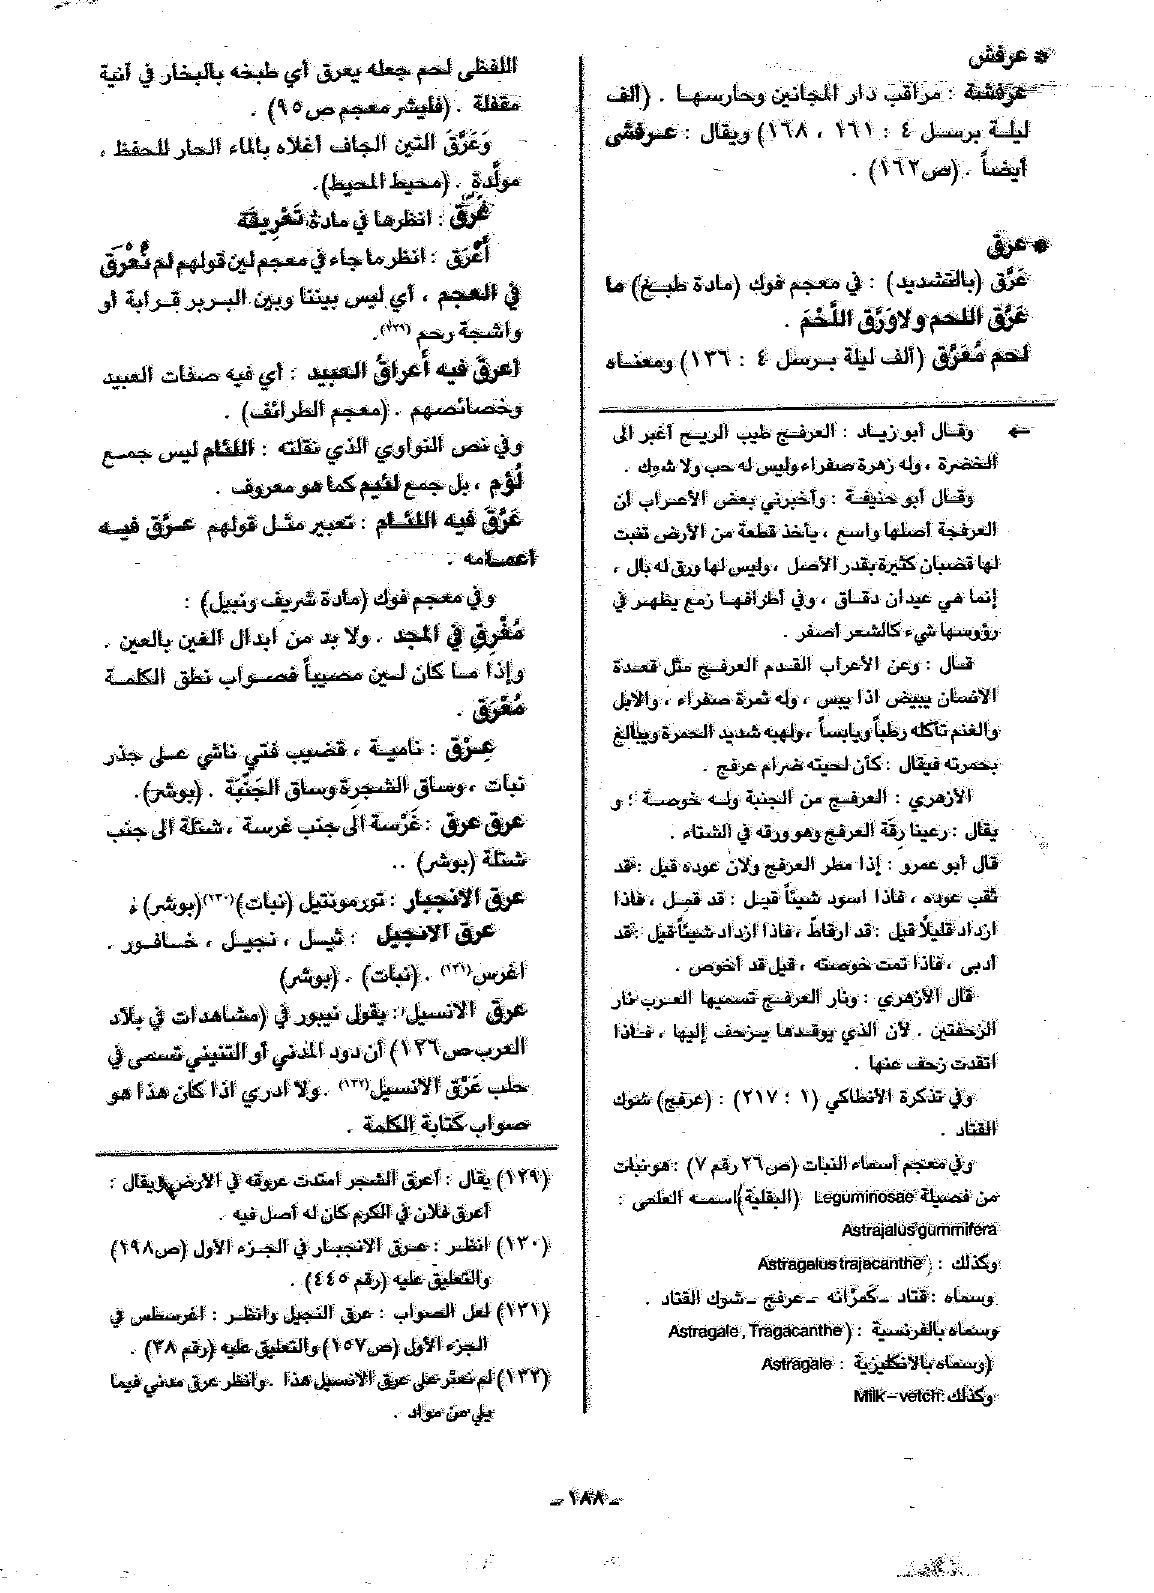 * عرفش
عرفشة : مراقب دار المجانين وحارسها . (ألف
ليلة برسل ٤ : ١٦١ ، ١٦٨) ويقال : عرفشى
أيضاً . (ص١٦٢) .
* عرق
عَرَّق (بالتشديد) : في معجم فوك (مادة طبخ) ما
عَرَّق اللحم ولاوَرَّق اللَّحْمَ .
لحم مُعَرَّق (ألف ليلة برسل ٤ : ١٣٦) ومعناه
اللفظى لحم جعله يعرق أي طبخه بالبخار في آنية
مقفلة . (فليشر معجم ص٩٥) .
وَعَرَّقَ التين الجاف أغلاه بالماء الحار للحفظ ،
مولَّدة . (محيط المحيط).
عَرَّق : انظرها في مادة تَعْرِيقَة
أَعْرَق : انظر ما جاء في معجم لين قولهم لم نُعْرَق
في العجم ، أي ليس بيننا وبين البربر قرابة أو
واشجة رحم (١٢٩).
أعرقَ فيه أَعراقُ العبيد : أي فيه صفات العبيد
وخصائصهم . (معجم الطرائف) .
وفي نص النواوي الذي نقلته : اللئام ليس جمع
لُؤم ، بل جمع لئيم كما هو معروف .
عَرَّقَ فيه اللئام : تعبير مثل قولهم عرَّق فيه
أعمامه .
وفي معجم فوك (مادة شريف ونبيل) :
مُغْرِق في المجد . ولا بد من ابدال الغين بالعين .
وإذا ما كان لين مصيباً فصواب نطق الكلمة
مُعْرَق .
عِرْق : نامية ، قضيب فتي ناشي على جذر
نبات ، وساق الشجرة وساق الجَنْبَة . (بوشر).
عرق عرق : غَرْسة الى جنب غرسة ، شتلة الى جنب
شتلة (بوشر) ..
عرق الانجبار : تورمونتيل (نبات)(١٣٠)(بوشر) ؛
عرق الانجيل : ثيل ، نجيل ، خافور .
اغرس(١٣١) . (نبات) . (بوشر)
عرق الانسيل : يقول نيبور في (مشاهدات في بلاد
العرب ص١٣٦) أن دود المدني أو التنيني تسمى في
حلب عَرْق الانسيل(١٣٢) . ولا ادري اذا كان هذا هو
صواب كتابة الكلمة .
← وقال أبو زياد : العرفج طيب الريح أغبر الى
الخضرة ، وله زهرة صفراء وليس له حب ولا شوك .
وقال أبو حنيفة : وأخبرني بعض الأعراب أن
العرفجة أصلها واسع ، يأخذ قطعة من الأرض تنبت
لها قضبان كثيرة بقدر الأصل ، وليس لها ورق له بال ،
إنما هي عيدان دقاق ، وفي أطرافها زمع يظهر في
رؤوسها شيء كالشعر أصفر .
قال : وعن الأعراب القدم العرفج مثل قعدة
الانسان يبيض اذا يبس ، وله ثمرة صفراء ، والابل
والغنم تأكله رطباً ويابساً ، ولهبه شديد الحمرة ويبالغ
بحمرته فيقال : كأن لحيته ضرام عرفج .
الأزهري : العرفج من الجنبة وله خوصة ؛ و
يقال : رعينا رِقَة العرفج وهو ورقه في الشتاء .
قال أبو عمرو : إذا مطر العرفج ولان عوده قيل : قد
ثقب عوده ، فاذا اسود شيئاً قيل : قد قمل ، فاذا
ازداد قليلاً قيل : قد ارقاطَّ ، فاذا ازداد شيئاً قيل : قد
أدبى ، فاذا تمت خوصته ، قيل قد أخوص .
قال الأزهري : ونار العرفج تسميها العرب نار
الزحفتين . لأن الذي يوقدها يزحف إليها ، فاذا
اتقدت زحف عنها .
وفي تذكرة الأنطاكي (١ : ٢١٧) : (عرفج) شوك
القتاد .
وفي معجم أسماء النبات (ص٢٦ رقم ٧) : هو نبات
من فصيلة Leguminosae (البقلية) اسمه العلمى :
Astrajalus gummifera
وكذلك : Astragalus trajacanthe
وسماه : قتاد – كَمَزَانه – عرفج – شوك القتاد .
وسماه بالفرنسية : (Astragale, Tragacanthe
(وسماه بالانكليزية : Astragale
وكذلك : Milk – vetch
(١٢٩) يقال : أعرق الشجر امتدت عروقه في الأرض ويقال :
أعرق فلان في الكرم كان له أصل فيه .
(١٣٠) انظر : عرق الانجبار في الجزء الأول (ص١٩٨)
والتعليق عليه (رقم ٤٤٥) .
(١٣١) لعل الصواب : عرق النجيل وانظر : اغرسطس في
الجزء الأول (ص١٥٧) والتعليق عليه (رقم ٣٨) .
(١٣٢) لم نعثر على عرق الانسيل هذا . وانظر عرق مدني فيما
يلي من مواد .
– ١٨٨ –